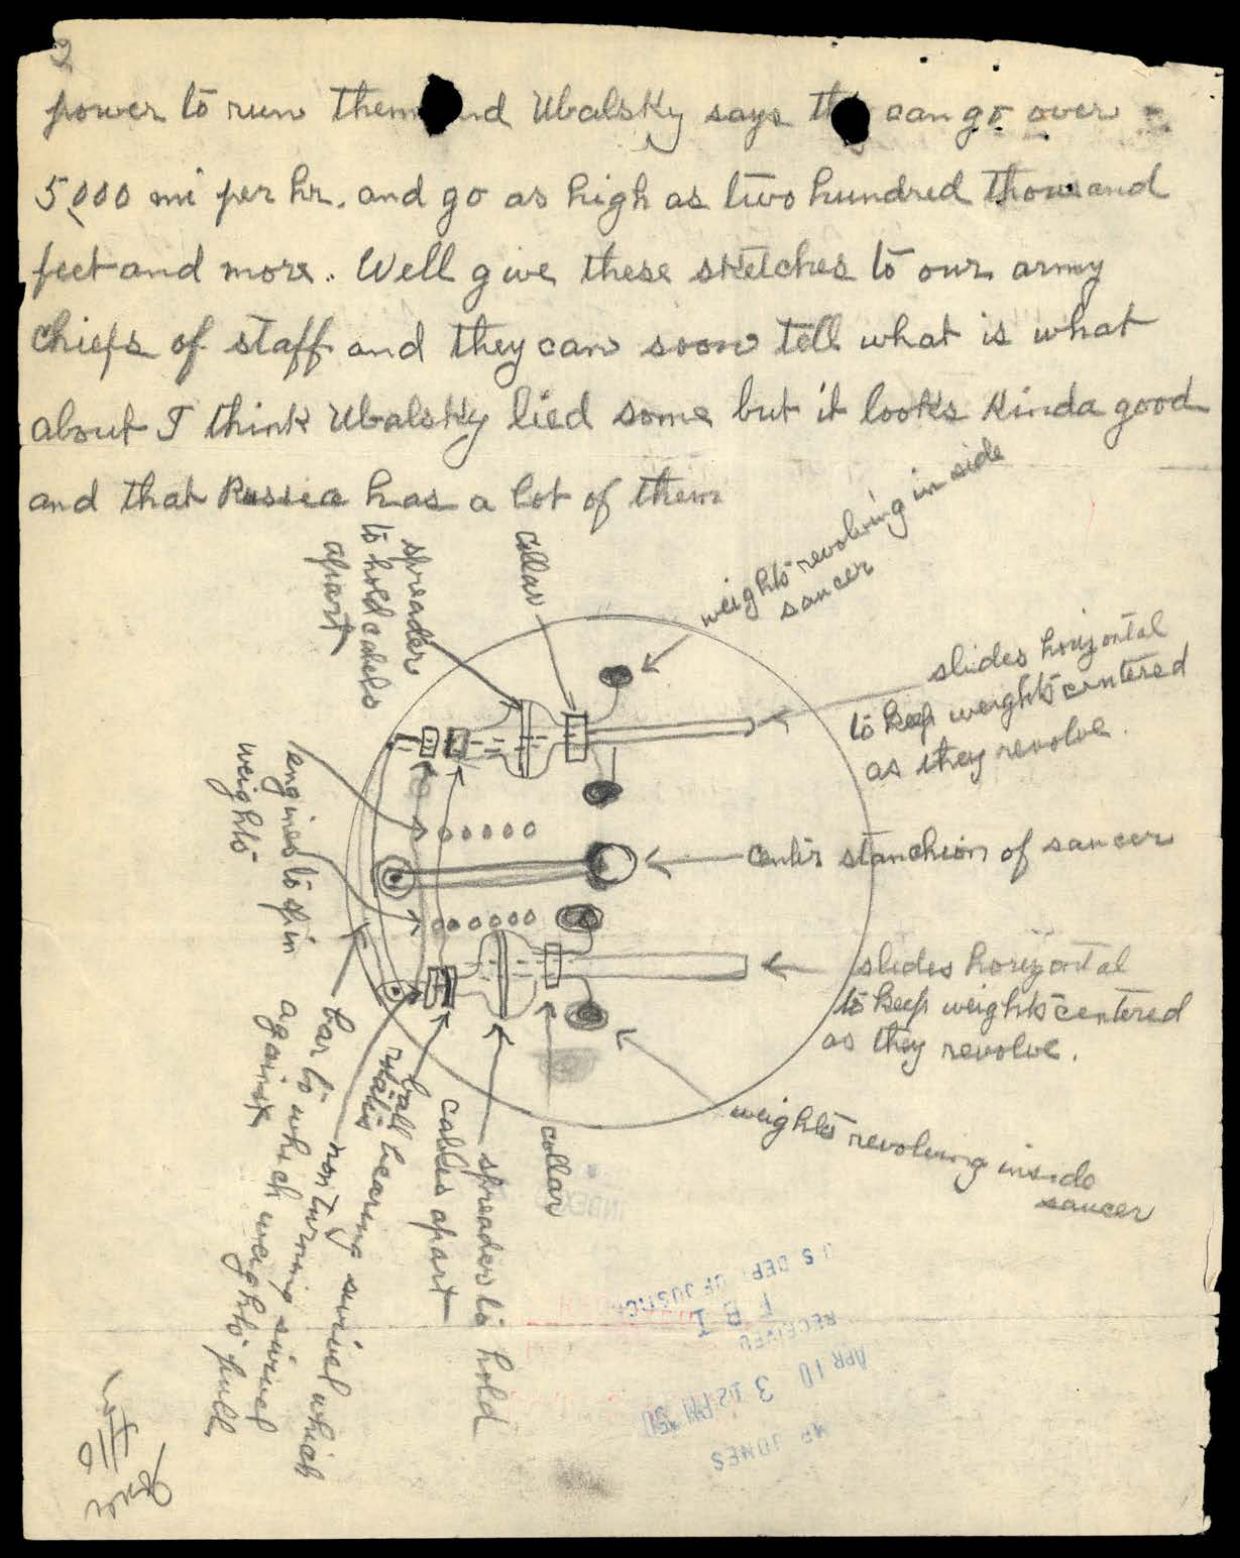 2
power to run them and Ubalsky says they can go over
5,000 mi per hr. and go as high as two hundred thousand
feet and more. Well give these sketches to our army
chiefs of staff and they can soon tell what is what
about I think Ubalsky lied some but it looks kinda good
and that Russia has a lot of them
weights revolving in side
saucer
collar
spreader
to hold cabels
apart
slides horizontal
to keep weights centered
as they revolve.
engines to spin
weights
center stanchion of saucer
slides horizontal
to keep weights centered
as they revolve.
weights revolving inside
saucer
collar
spreader to hold
cables apart
ball bearing swivel which
rotates
non turning swivel
bar to which weights pull
against
U S DEPT OF JUSTICE
F B I
RECEIVED
APR 10 3 12 PM
MR JONES